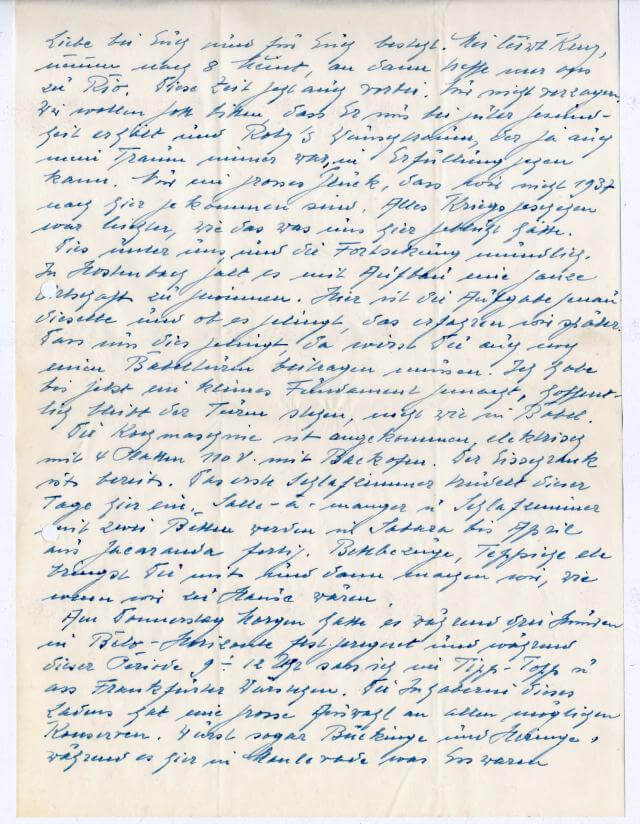 Liebe bei Euch und für Euch besorgt. Kurz,
nimm noch 8 heint, an dann hoffe nur
zu Rio. Diese Zeit geht auch vorbei. Nur nicht verzagen
Wir wollen Gott bitten, dass Er uns bei guter Gesund-
heit erhält und Roby's Wunschtraum, der ja auch
mein Traum immer war, in Erfüllung gehen
kann. Nur ein grosses Glück, dass wir nicht 1937
nach hier gekommen sind. Alles Kriegsgeschehen
war leichter, wie das was uns hier geblüht hätte.
Dies unter uns und die Fortsetzung mündlich.
In Hostenbach galt es mit Aufbau eine ganze
Ortschaft zu gewinnen. Hier ist die Aufgabe genau
dieselbe und ob es gelingt, das erfahren wir später.
Dass uns dies gelingt, da wirst Du auch noch
einen Babelturm beitragen müssen. Ich habe
bis jetzt ein kleines Fundament gemacht, hoffent-
lich bleibt der Turm stehen, nicht wie in Babel.
Die Kochmaschine ist angekommen, elektrisch
mit 4 Platten 110 V. mit Backofen. Der Eisschrank
ist bereits. Das erste Schlafzimmer trudelt dieser
Tage hier ein. Salle-à-manger u Schlafzimmer
mit zwei Betten werden in Sabara bis April
aus Jacaranda fertig. Bettbezüge, Teppiche etc
bringst Du mit und dann machen wir, wie
wenn wir zu Hause wären.
Am Donnerstag Morgen hatte es während drei Stunden
in Belo-Horizonte fest geregnet und während
dieser Periode 9-12 Uhr sass ich im Tipp-Topp u
ass Frankfurter Würstchen. Die Inhaberin dieses
Ladens hat eine grosse Auswahl an allen möglichen
Konserven. Wurst sogar Bückinge und Heringe,
während es hier in Monlevade was Esswaren